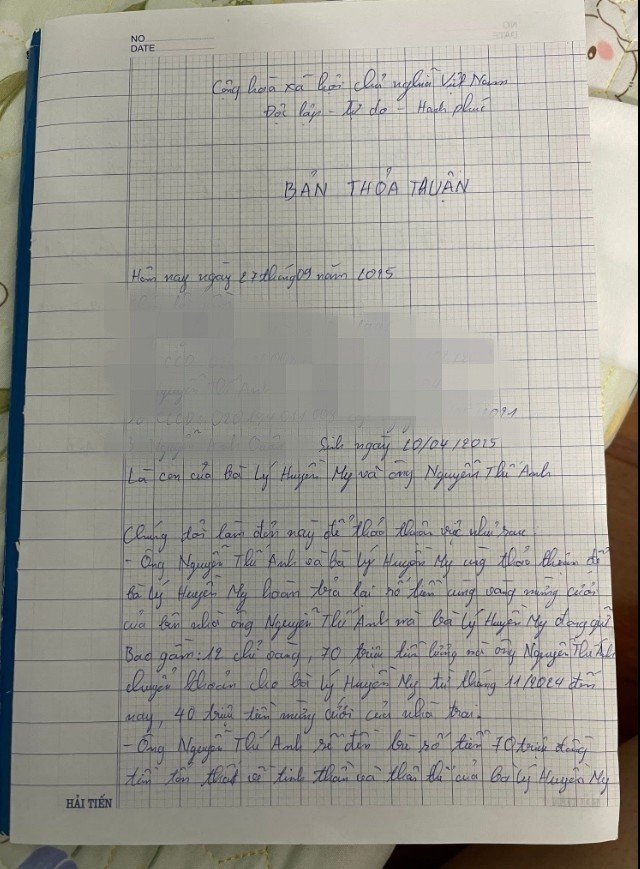 NO
DATE
Cộng hoà xã hội chủ nghĩa Việt Nam
Độc lập - Tự do - Hạnh phúc
BẢN THỎA THUẬN
Hôm nay ngày 27 tháng 09 năm 2025
Sinh ngày 20/04/2025
Là con của bà Lý Huyền My và ông Nguyễn Thế Anh
Chúng tôi làm đơn này để thỏa thuận việc như sau:
- Ông Nguyễn Thế Anh và bà Lý Huyền My cùng thỏa thuận để
bà Lý Huyền My hoàn trả lại số tiền cùng vàng mừng cưới
của bên nhà ông Nguyễn Thế Anh mà bà Lý Huyền My đang giữ
Bao gồm: 12 chỉ vàng, 70 triệu tiền lương mà ông Nguyễn Thế Anh
chuyển khoản cho bà Lý Huyền My từ tháng 11/2024 đến
nay, 40 triệu tiền mừng cưới của nhà trai.
- Ông Nguyễn Thế Anh sẽ đền bù số tiền 70 triệu đồng
tiền tổn thất về tinh thần và thân thể của bà Lý Huyền My
HẢI TIẾN